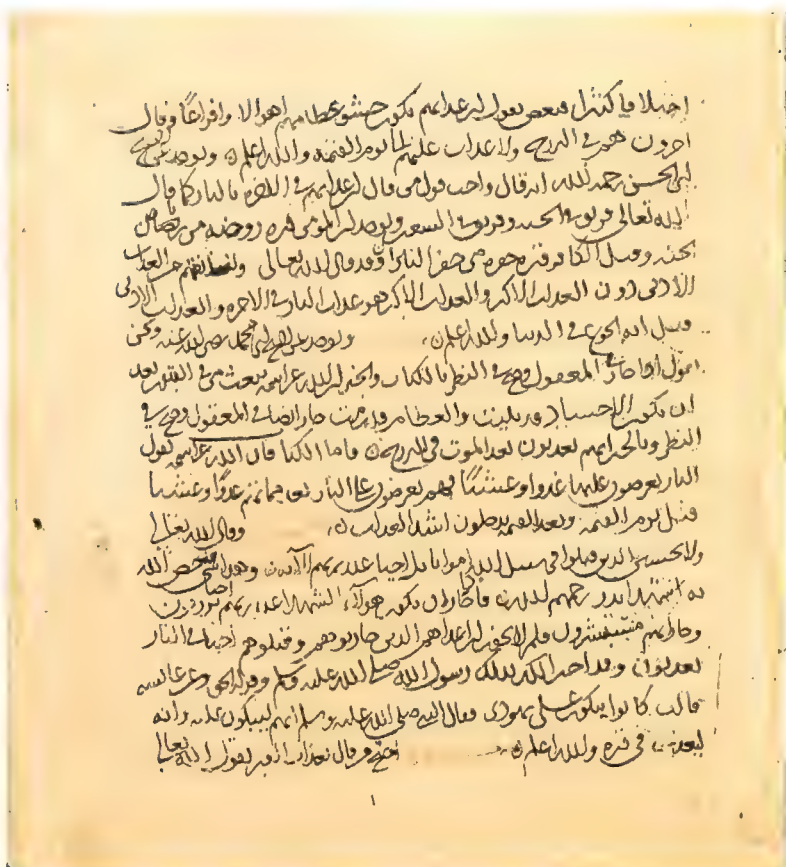 اختلافا كثيرا فبعض يقول ان عذابهم يكون حشو عظامهم اهوالا وافزاعا وقال
اخرون هم في البرزخ ولا عذاب عليهم الى يوم القيمة والله اعلم ويوجد عن
ابي الحسن رحمه الله انه قال واحب قول من قال ان عذابهم في الاخرة بالنار كما قال
الله تعالى فريق في الجنه وفريق في السعير ويوجد ان المومن قبره روضه من رياض
الجنه وقيل الكافر قبره حفره من حفر النار وقد قال الله تعالى ولنذيقنهم من العذاب
الادنى دون العذاب الاكبر والعذاب الاكبر هو عذاب النار في الاخره والعذاب الادنى
قيل انه الجوع في الدنيا والله اعلم ويوجد عن ابي محمد رضي الله عنه ونحن
نقول اذا جاز في المعقول وصح في النظر بالكتاب والخبر ان الله يبعث من في القبور بعد
ان تكون الاجساد قد بليت والعظام قد رمت جاز ايضا في المعقول وصح في
النظر وبالخبر انهم يعذبون بعد الموت في البرزخ فاما الكتاب فان الله يقول
النار يعرضون عليها غدوا وعشيا فهم يعرضون على النار بعد مماتهم غدوا وعشيا
قبل يوم القيمة وبعد القيمة يدخلون اشد العذاب وقال الله تعالى
ولا تحسبن الذين قتلوا في سبيل الله امواتا بل احيا عند ربهم الآية وهذا شي خص الله
به شهدا بدر رحمهم الله فاذا جاز ان يكون هؤلاء الشهدا عند ربهم احيا يرزقون
وجاز انهم مستبشرون فلم لا يجوز ان اعداهم الذين حاربوهم وقتلوهم احيا في النار
يعذبون وقد اخبر بذلك رسول الله صلى الله عليه وسلم وقوله الحق وعن عائشه
قالت كانوا يبكون على يهودي فقال النبي صلى الله عليه وسلم انهم ليبكون عليه وانه
ليعذب في قبره والله اعلم احتج من قال بعذاب القبر بقول الله تعالى